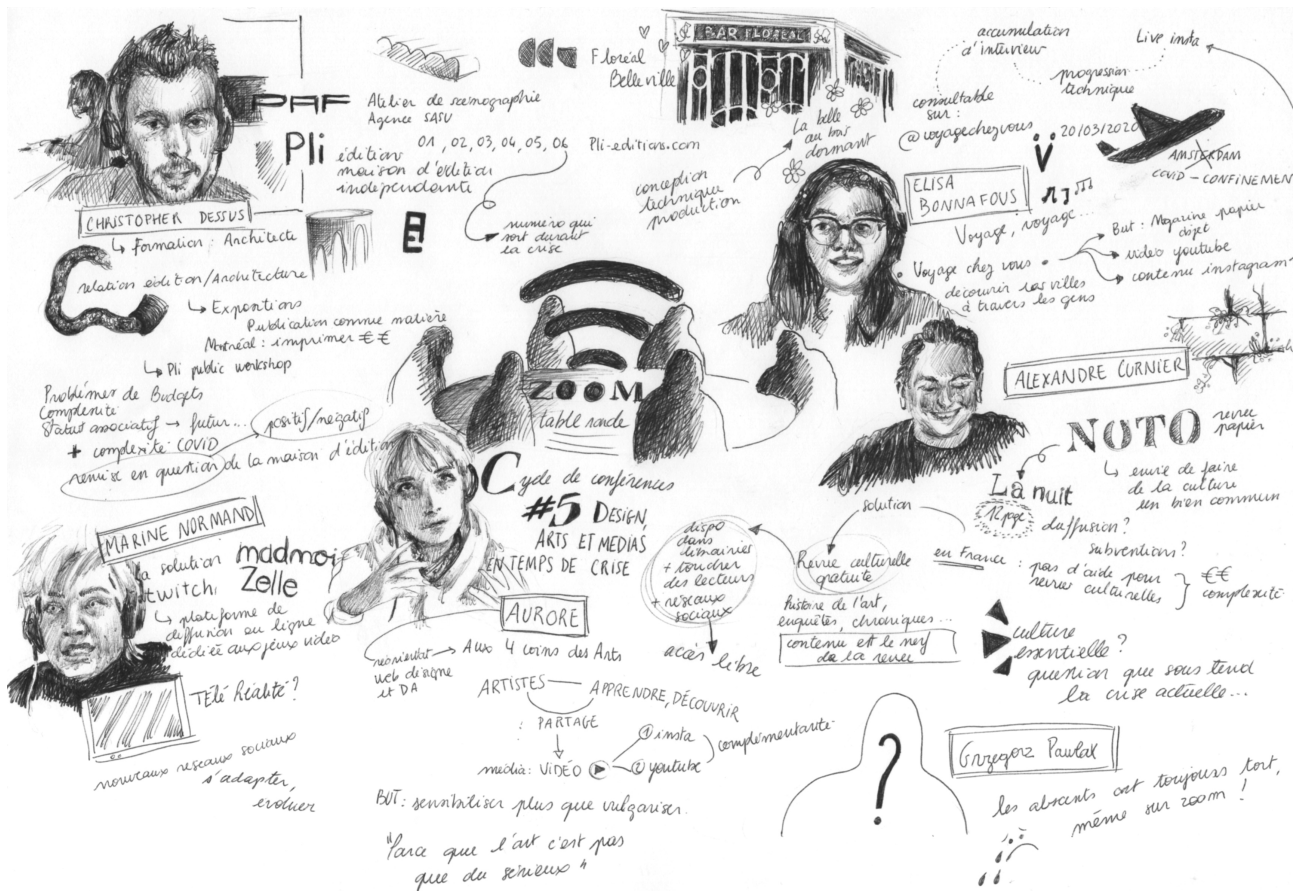 PAF
Atelier de scenographie
Agence SASU
Pli
édition
maison d'édition
indépendante
01, 02, 03, 04, 05, 06
Pli-editions.com
numéro qui
sort durant
la crise
CHRISTOPHER DESSUS
↳ Formation : Architecte
relation édition/Architecture
↳ Expositions
Publication comme matière
Montréal : imprimer € €
↳ Pli public workshop
Problèmes de Budgets
Complexité
Status associatif → futur... positif/négatif
+ complexité : COVID
remise en question de la maison d'édition
Floréal
Belleville
BAR FLORÉAL
La belle
au bois
dormant
conception
technique
production
accumulation
d'interview
Live insta
progression
technique
consultable
sur :
@voyagechezvous
20/03/2020
AMSTERDAM
COVID - CONFINEMEN
ELISA
BONNAFOUS
Voyage, voyage...
• Voyage chez vous •
découvrir nos villes
à travers les gens
But : Magazine papier
objet
video youtube
contenu instagram
ZOOM
table ronde
Cycle de conférences
#5 DESIGN,
ARTS ET MEDIAS
EN TEMPS DE CRISE
ALEXANDRE CURNIER
NOTO
revue
papier
↳ envie de faire
de la culture
un bien commun
La nuit
12 page
diffusion?
subventions?
solution
en France : pas d'aide pour
revues culturelles
€€
complexité
Revue culturelle
gratuite
histoire de l'art,
enquêtes, chroniques...
contenu est le nerf
de la revue
dispo
dans
+ toucher
des lecteurs
+ réseaux
sociaux
accès libre
culture
essentielle?
question que sous tend
la crise actuelle...
MARINE NORMAND
la solution
twitch,
madmoi
Zelle
↳ plateforme de
diffusion en ligne
dédiée aux jeux vidéo
TÉLÉ RÉALITÉ?
nouveaux reseaux sociaux
s'adapter,
evoluer
AURORE
web designe
et DA
→ Aux 4 coins des Arts
ARTISTES — APPRENDRE, DÉCOUVRIR
: PARTAGE
média : VIDÉO
① insta
② youtube
complémentarité
BUT : sensibiliser plus que vulgariser.
"Parce que l'art c'est pas
que du sérieux"
?
Grzegorz Pawlak
les absents ont toujours tort,
même sur zoom !